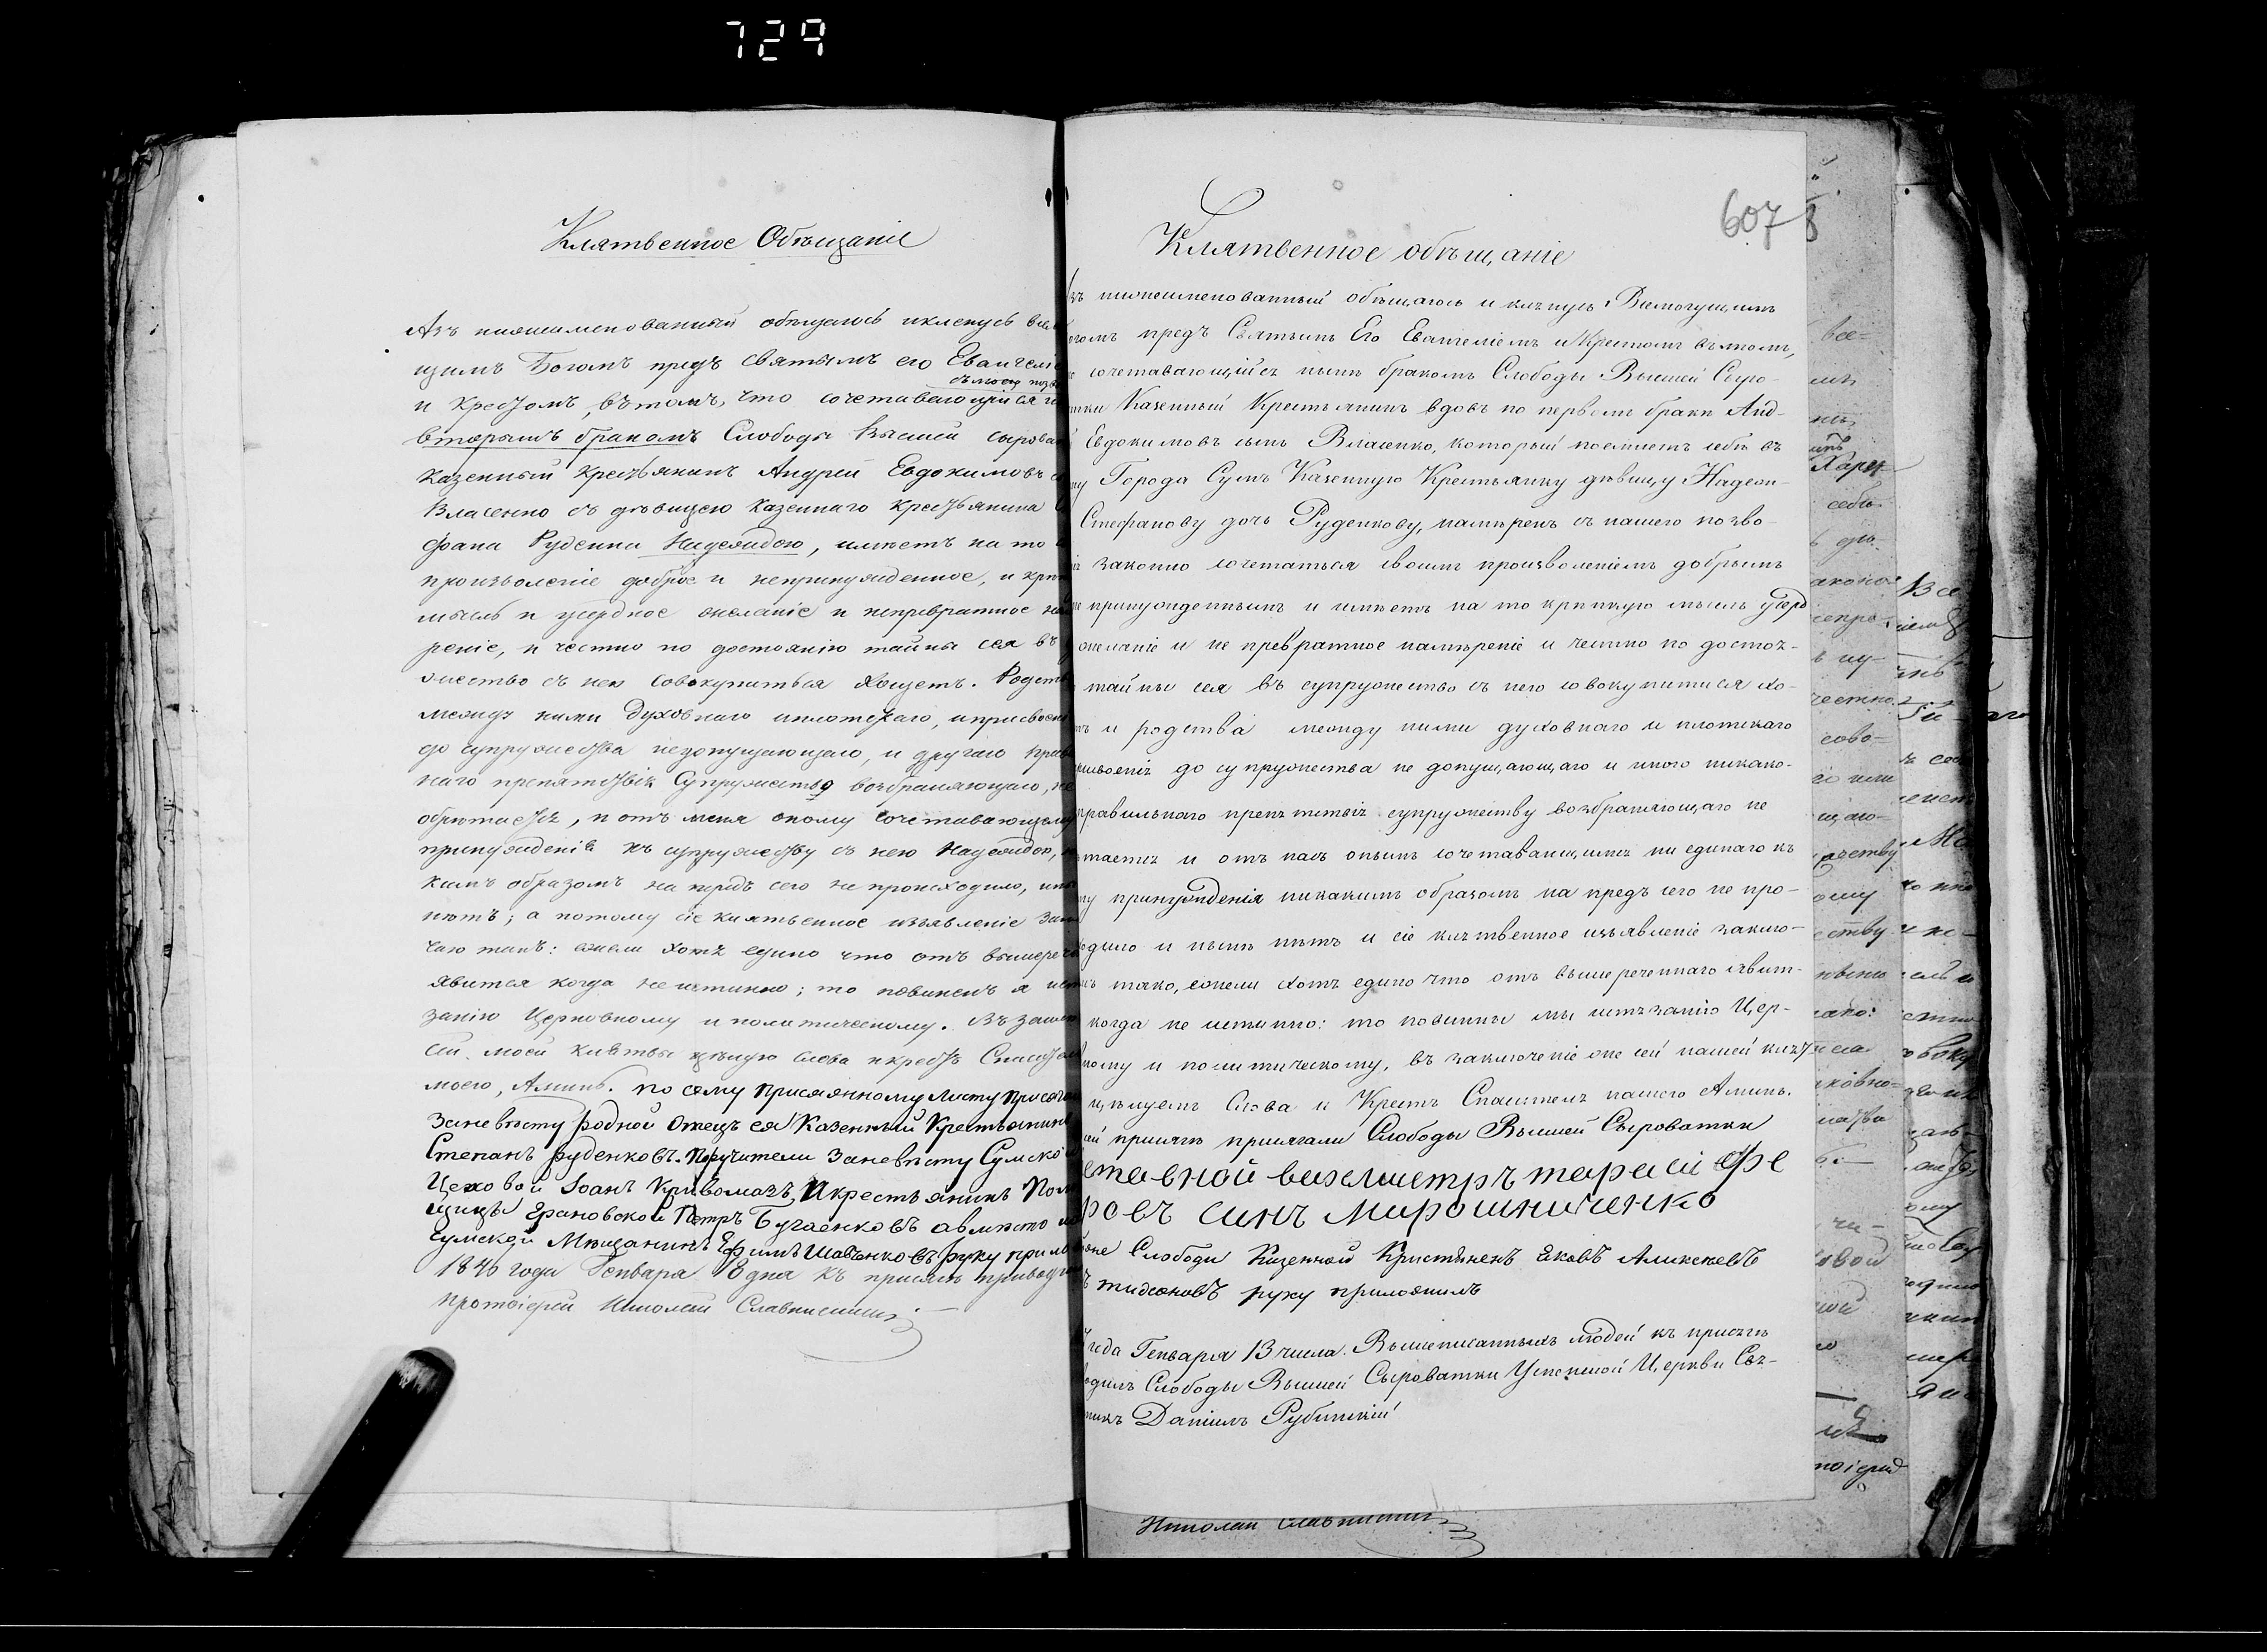 729
Клятвенное Обѣщаніе
Азъ нижеименованный обѣщаюсь и кленусь все
щимъ Богомъ предъ Святымъ его Евангелі
съ моего позв
и Крестомъ, въ томъ, что сочетавающійся
вторымъ бракомъ Слободы Высшей Сырова
Казенный Крестьянинъ Андрей Евдокимовъ с
Власенко съ дѣвицею Казеннаго Крестьянина
фана Руденка Надеждою, имѣетъ на то
произволеніе доброе и непринужденное, и крѣп
мысль и усердное желаніе и непревратное на
реніе, и честно по достоянію тайны сея въ
жество съ нею совокупиться хощетъ. Родств
между ними духовнаго и плотскаго, и присвоен
до супружества недопущающаго, и другаго прав
наго препятствія Супружеству возбраняющаго, не
обрѣтается, и отъ меня оному сочетавающему
принужденія къ супружеству съ нею Надеждою,
кимъ образомъ на предъ сего не происходило, и ны
нѣтъ; а потому сіе клятвенное изъявленіе закл
чаю такъ: ежели хотя едино что отъ вышереч
явится когда не истинно; то повиненъ я ист
занію Церковному и политическому. Въ заклю
сей моей клятвы цѣлую слова и крестъ Спасител
моего, Аминь. По сему присяжному листу присяга
За невѣсту родной Отецъ ея Казенный Крестьянинъ
Степанъ Руденковъ. Поручители За невѣсту Сумской
Цеховой Іоанъ Кривомазъ, И крестьянинъ Пол
щицы Ерановской Петръ Бугаенковъ а вмѣсто
Сумской Мѣщанинъ Ефимъ Шовьенковъ руку прило
1840 года Генваря 18 дня къ присягѣ приводи
протоіерей Николай Славинскій
607
Клятвенное обѣщаніе
зъ нижеименованный обѣщаюсь и клянусь Всемогущимъ
огомъ предъ Святымъ Его Евангеліемъ и Крестомъ въ томъ,
сочетавающійся нынѣ бракомъ Слободы Высшей Сыро-
тки Казенный Крестьянинъ вдовъ по первомъ бракѣ Анд-
Евдокимовъ сынъ Власенко, который поемлетъ себѣ въ
ну Города Сумъ Казенную Крестьянку дѣвицу Надеж-
Стефанову дочь Руденкову, намѣренъ съ нашего позво-
ія законно сочетаться своимъ произволеніемъ добрымъ
не принужденнымъ и имѣетъ на то крѣпкую мысль усерд
желаніе и не превратное намѣреніе и честно по достоя-
тайны сея въ супружество съ нею совокупитися хо-
тъ и родства между ними духовнаго и плотскаго
присвоенія до супружества не допущающаго и иного никако-
правильнаго препятствія супружеству возбраняющаго не
тается и отъ насъ онымъ сочетавающимся ни единаго къ
му принужденія никакимъ образомъ на предъ сего не про-
одило и нынѣ нѣтъ и сіе клятвенное изъявленіе заклю-
мъ тако, ежели хотя едино что отъ вышереченнаго явит-
когда не истинно: то повинны мы истязанію Цер-
ному и политическому, въ заключеніе же сей нашей кля
цѣлуемъ Слова и Крестъ Спасителя нашего Аминь.
ей присягѣ присягали Слободы Высшей Сыроватки
ставной вахмистръ тарасій Фе
ровъ синъ Мирошниченко
же Слободи Казенной Кристяненъ Яковъ Аликсѣевъ
ъ тидженовъ руку приложилъ
года Генваря 13 числа. Вышеписанныхъ людей къ присягѣ
одилъ Слободы Высшей Сыроватки Успенской Церкви Свя-
никъ Даніилъ Рубинскій
Николай Славинскій